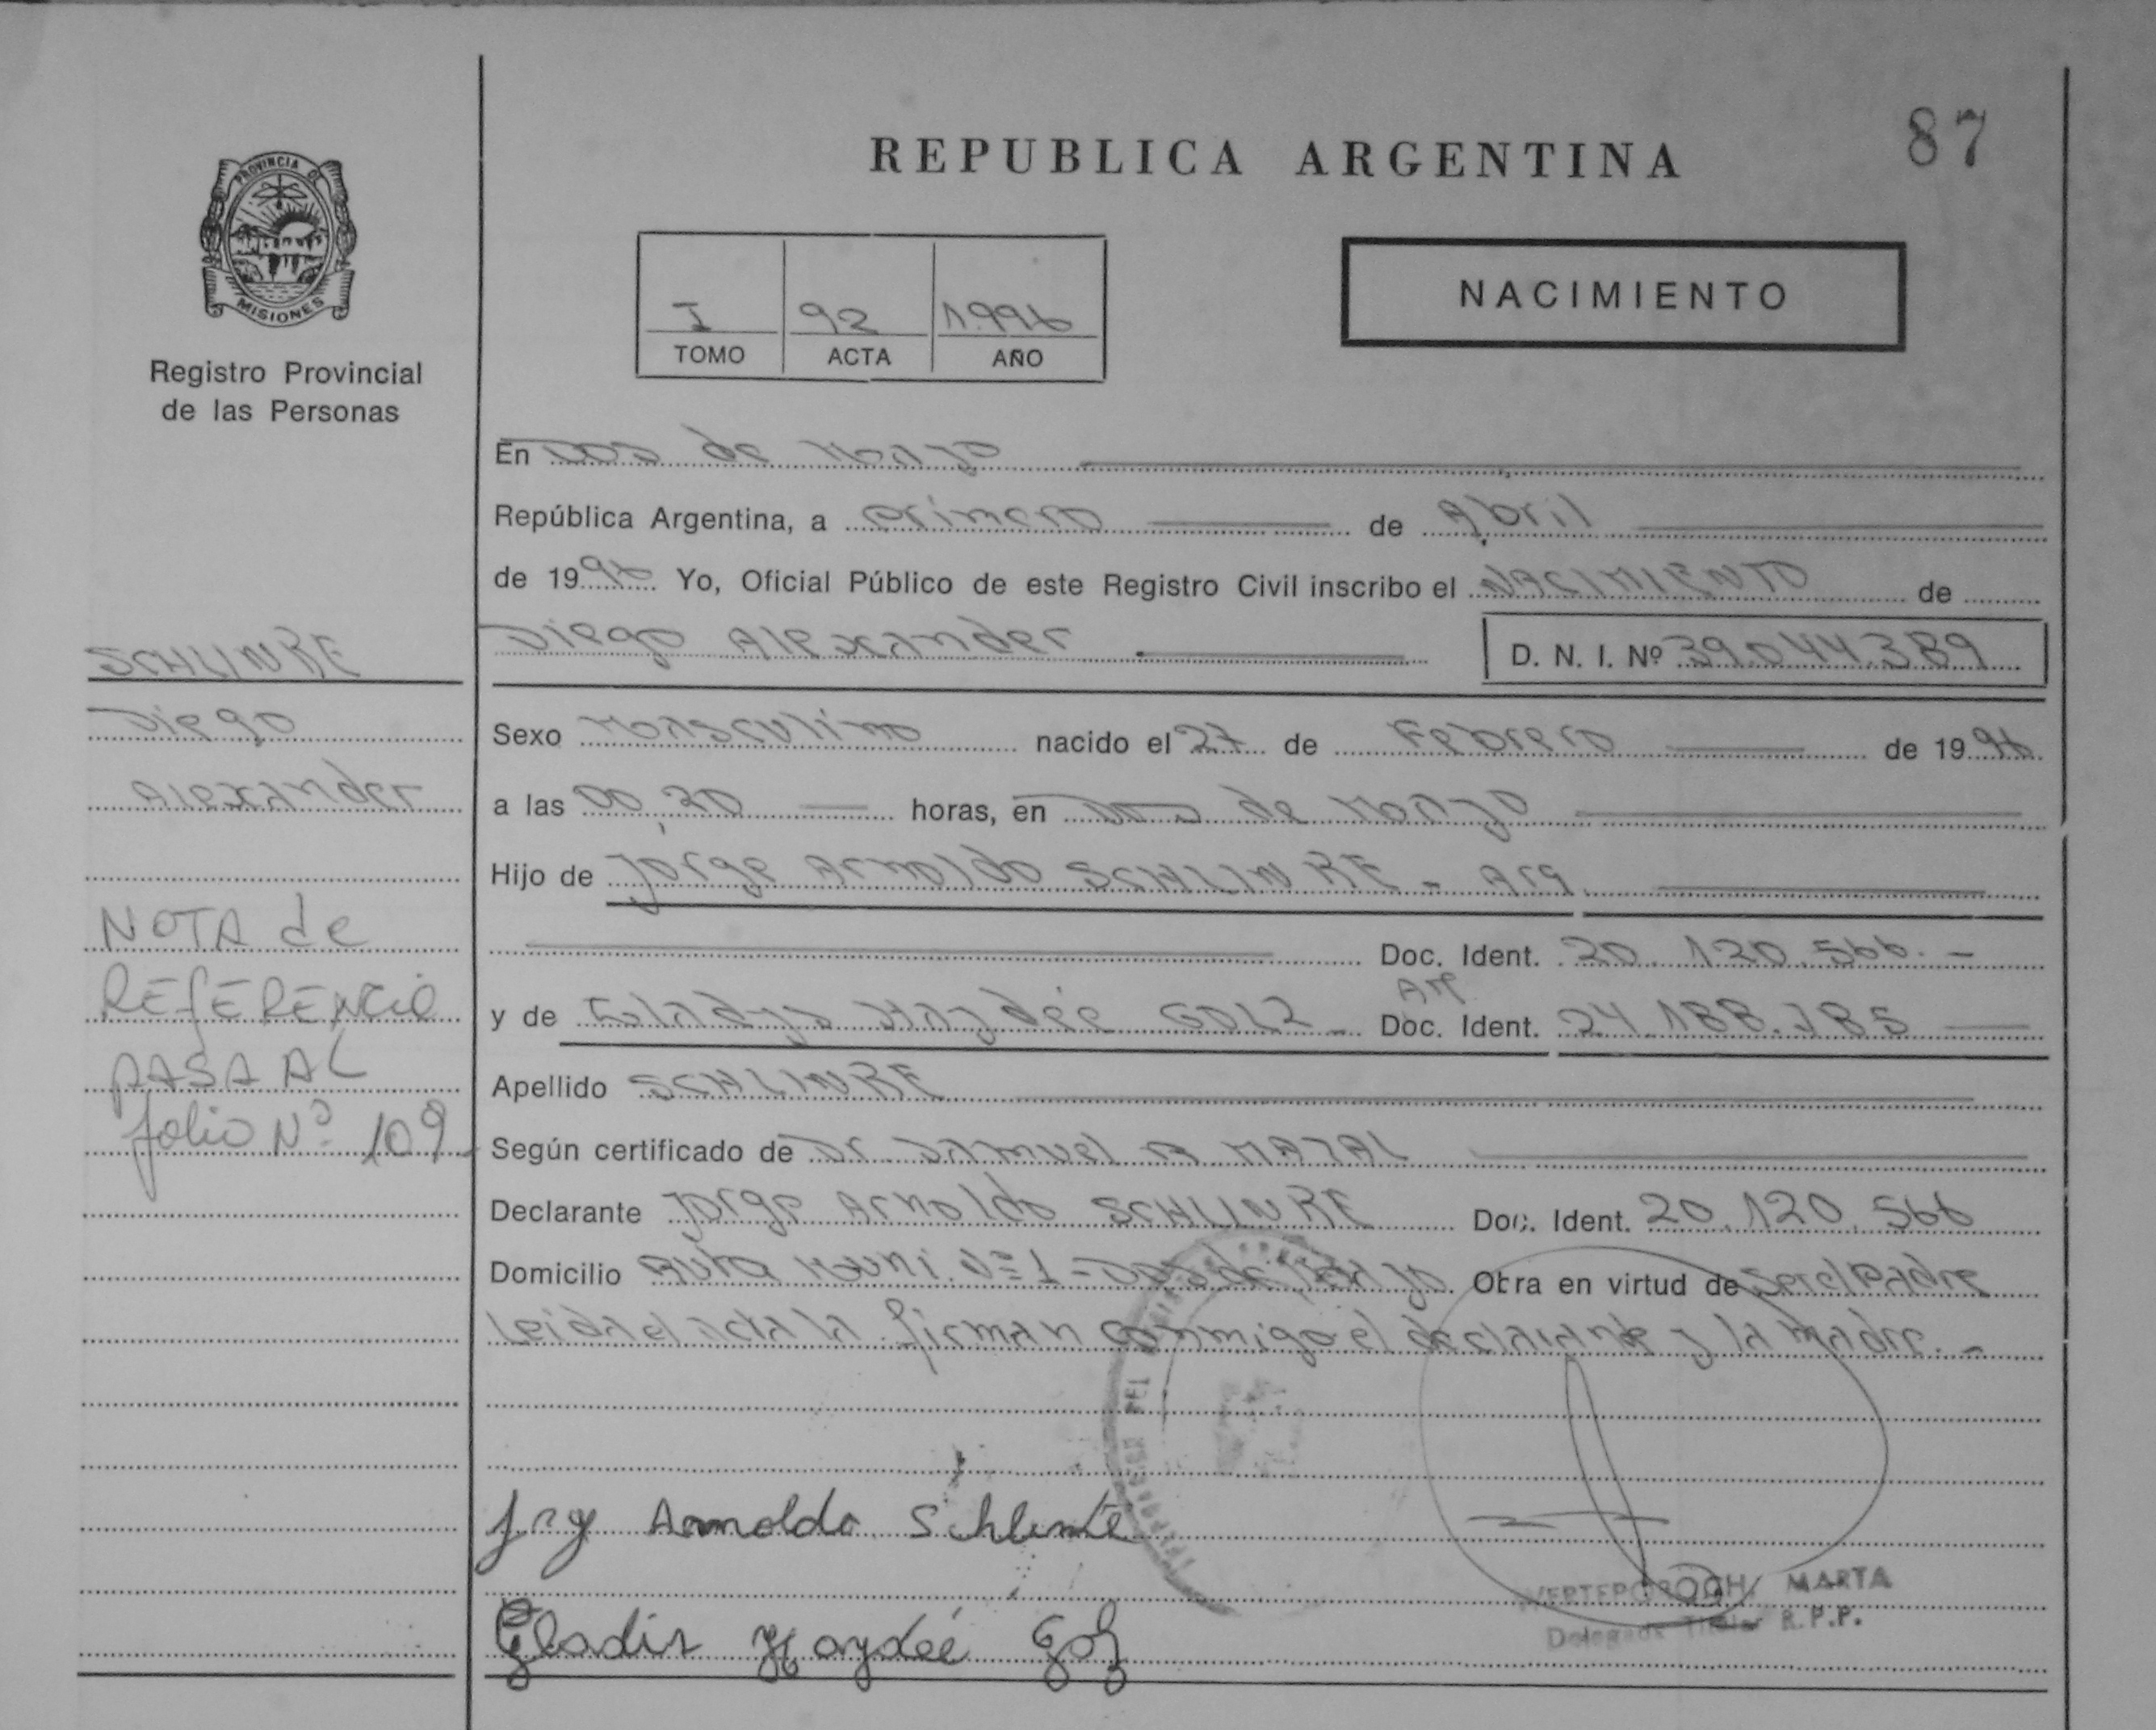 87
REPUBLICA ARGENTINA
PROVINCIA DE
MISIONES
Registro Provincial
de las Personas
I 92 1.996
TOMO ACTA AÑO
NACIMIENTO
En Dos de Mayo
República Argentina, a primero de Abril
de 1996 Yo, Oficial Público de este Registro Civil inscribo el NACIMIENTO de
Diego Alexander D. N. I. Nº 39.044.389
SCHLINKE
Diego
Alexander
NOTA de
REFERENCIA
PASA AL
folio Nº 109
Sexo Masculino nacido el 27 de Febrero de 1996
a las 00,30 horas, en Dos de Mayo
Hijo de Jorge Arnoldo SCHLINKE - Arg.
Doc. Ident. 20.120.566.-
Arg
y de Gladys Haydée GOLZ - Doc. Ident. 24.188.785
Apellido SCHLINKE
Según certificado de Dr Samuel MAZAL
Declarante Jorge Arnoldo SCHLINKE Doc. Ident. 20.120.566
Domicilio Ruta Muni. Nº 1 - Dos de Mayo Obra en virtud de ser el Padre
Leida el acta la firman conmigo el declarante y la Madre.-
Arnoldo Schlinke
Gladis Haydeé Golz
MARTA
Delegada Titular R.P.P.